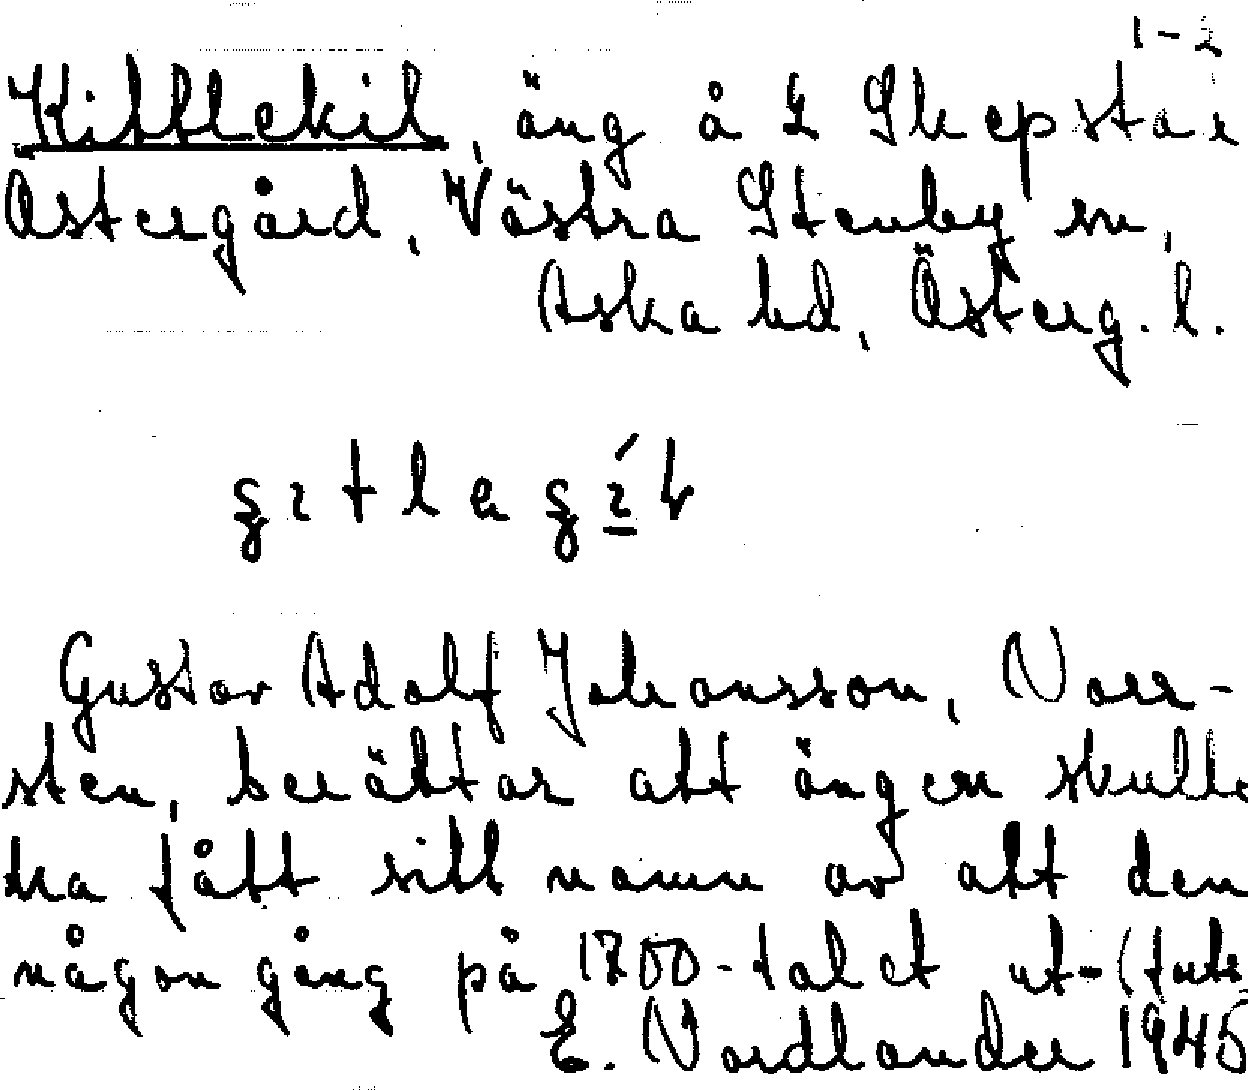 1-2
Kittlekil, äng å L Skepstai
Östergård, Västra Stenby sn,
Aska hd, Österg. l.
Gustav Adolf Johansson, Norr-
sten, berättar att ängen skulle
ha fått sitt namn av att den
någon gång på 1800-talet ut-
E. Nordlander 1945